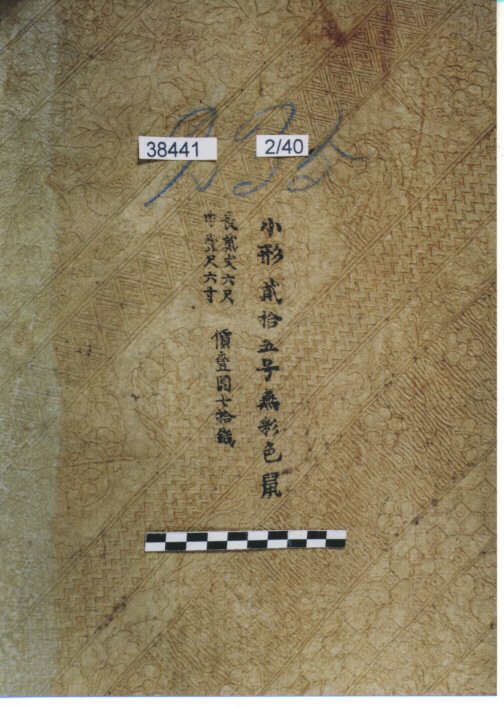 38441
2/40
小形 貳拾五号無彩色鼠
長貳丈六尺
巾壹尺六寸
價壹圓七拾錢